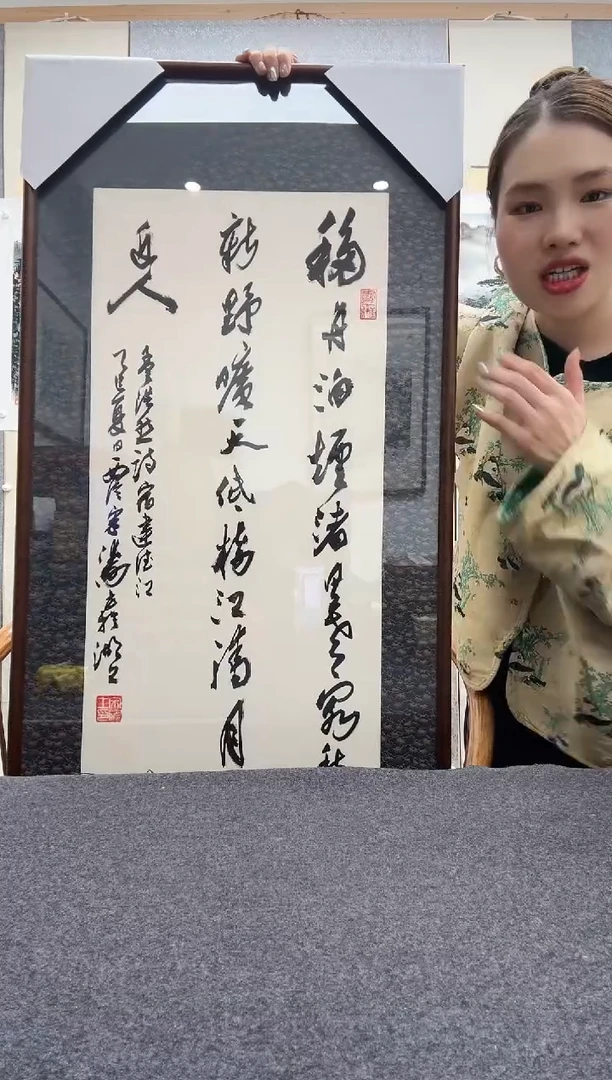 移舟泊煙渚日暮客
新野曠天低樹江清月
近人
孟浩然詩宿建德江
夏日